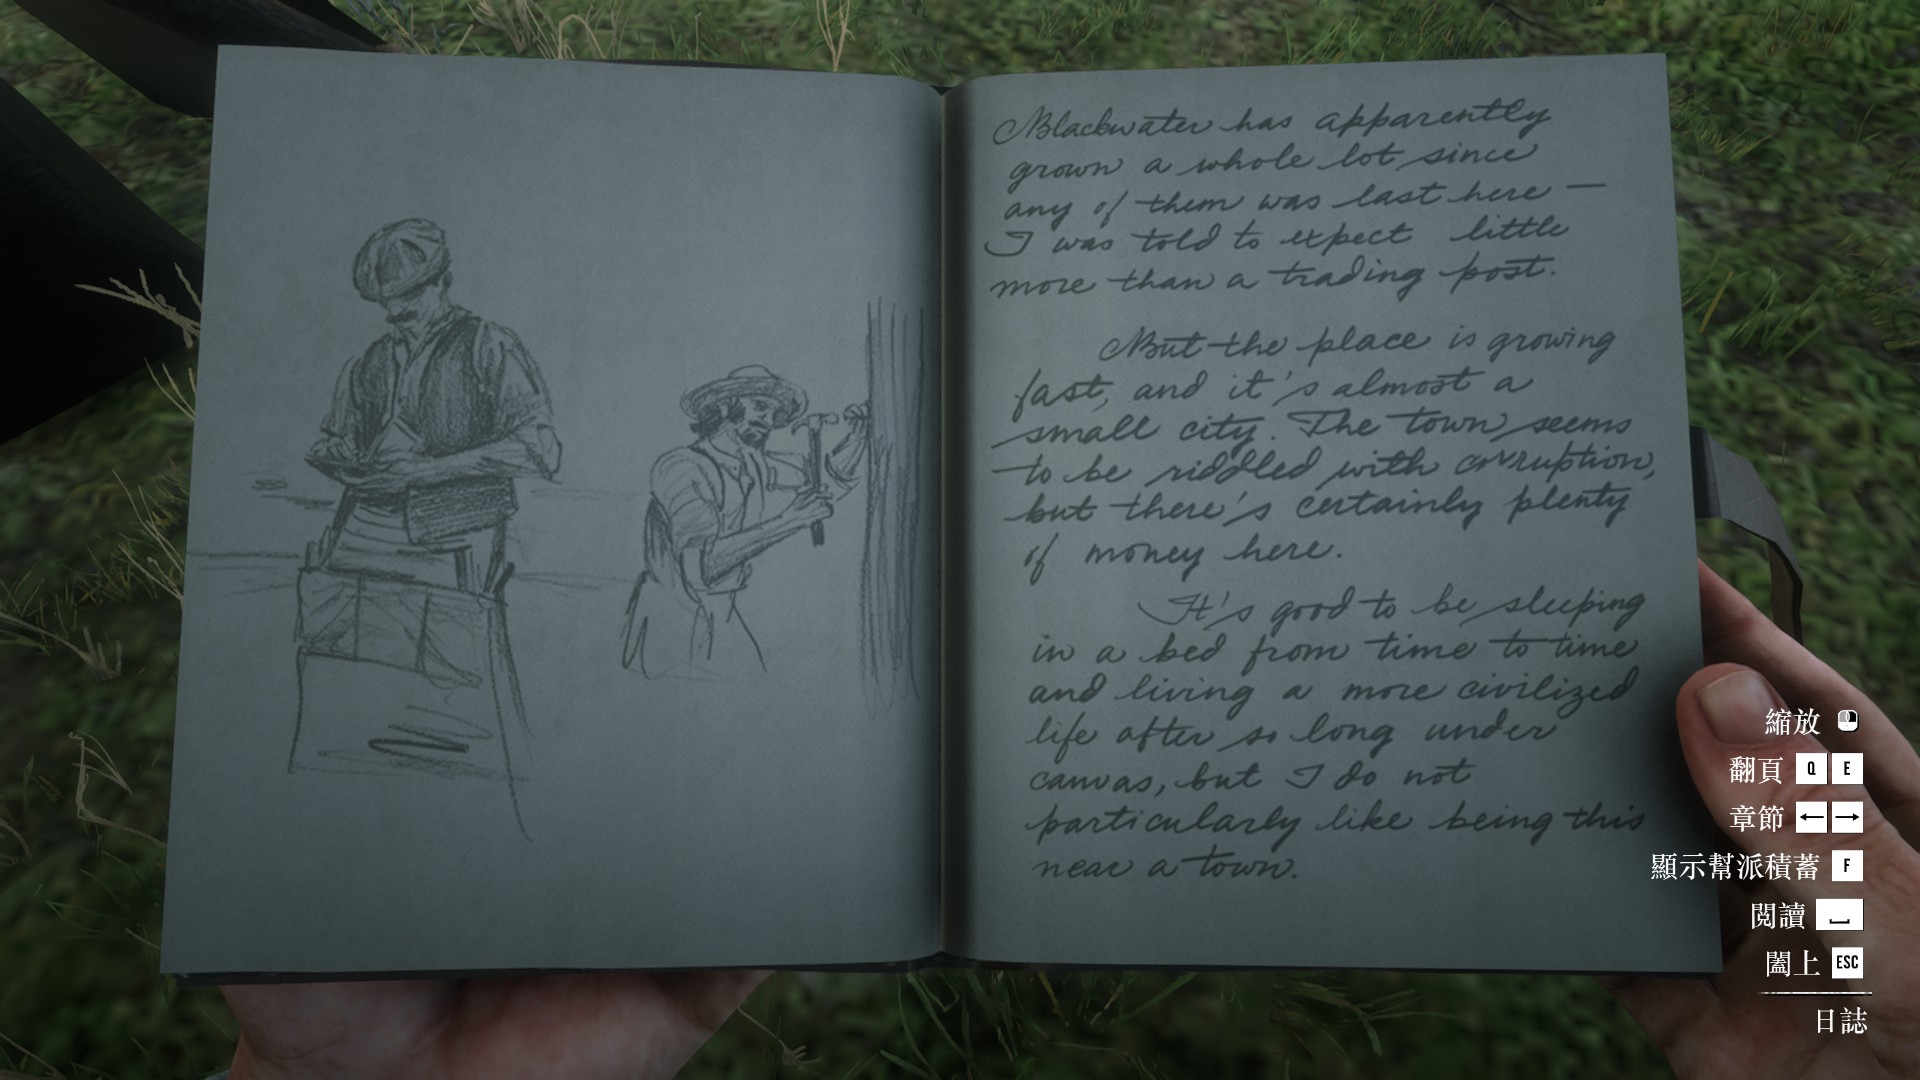 Blackwater has apparently
grown a whole lot since
any of them was last here —
I was told to expect little
more than a trading post.
But the place is growing
fast, and it's almost a
small city. The town seems
to be riddled with corruption,
but there's certainly plenty
of money here.
It's good to be sleeping
in a bed from time to time
and living a more civilized
life after so long under
canvas, but I do not
particularly like being this
near a town.
縮放
翻頁 Q E
章節 ← →
顯示幫派積蓄 F
閱讀
闔上 ESC
日誌